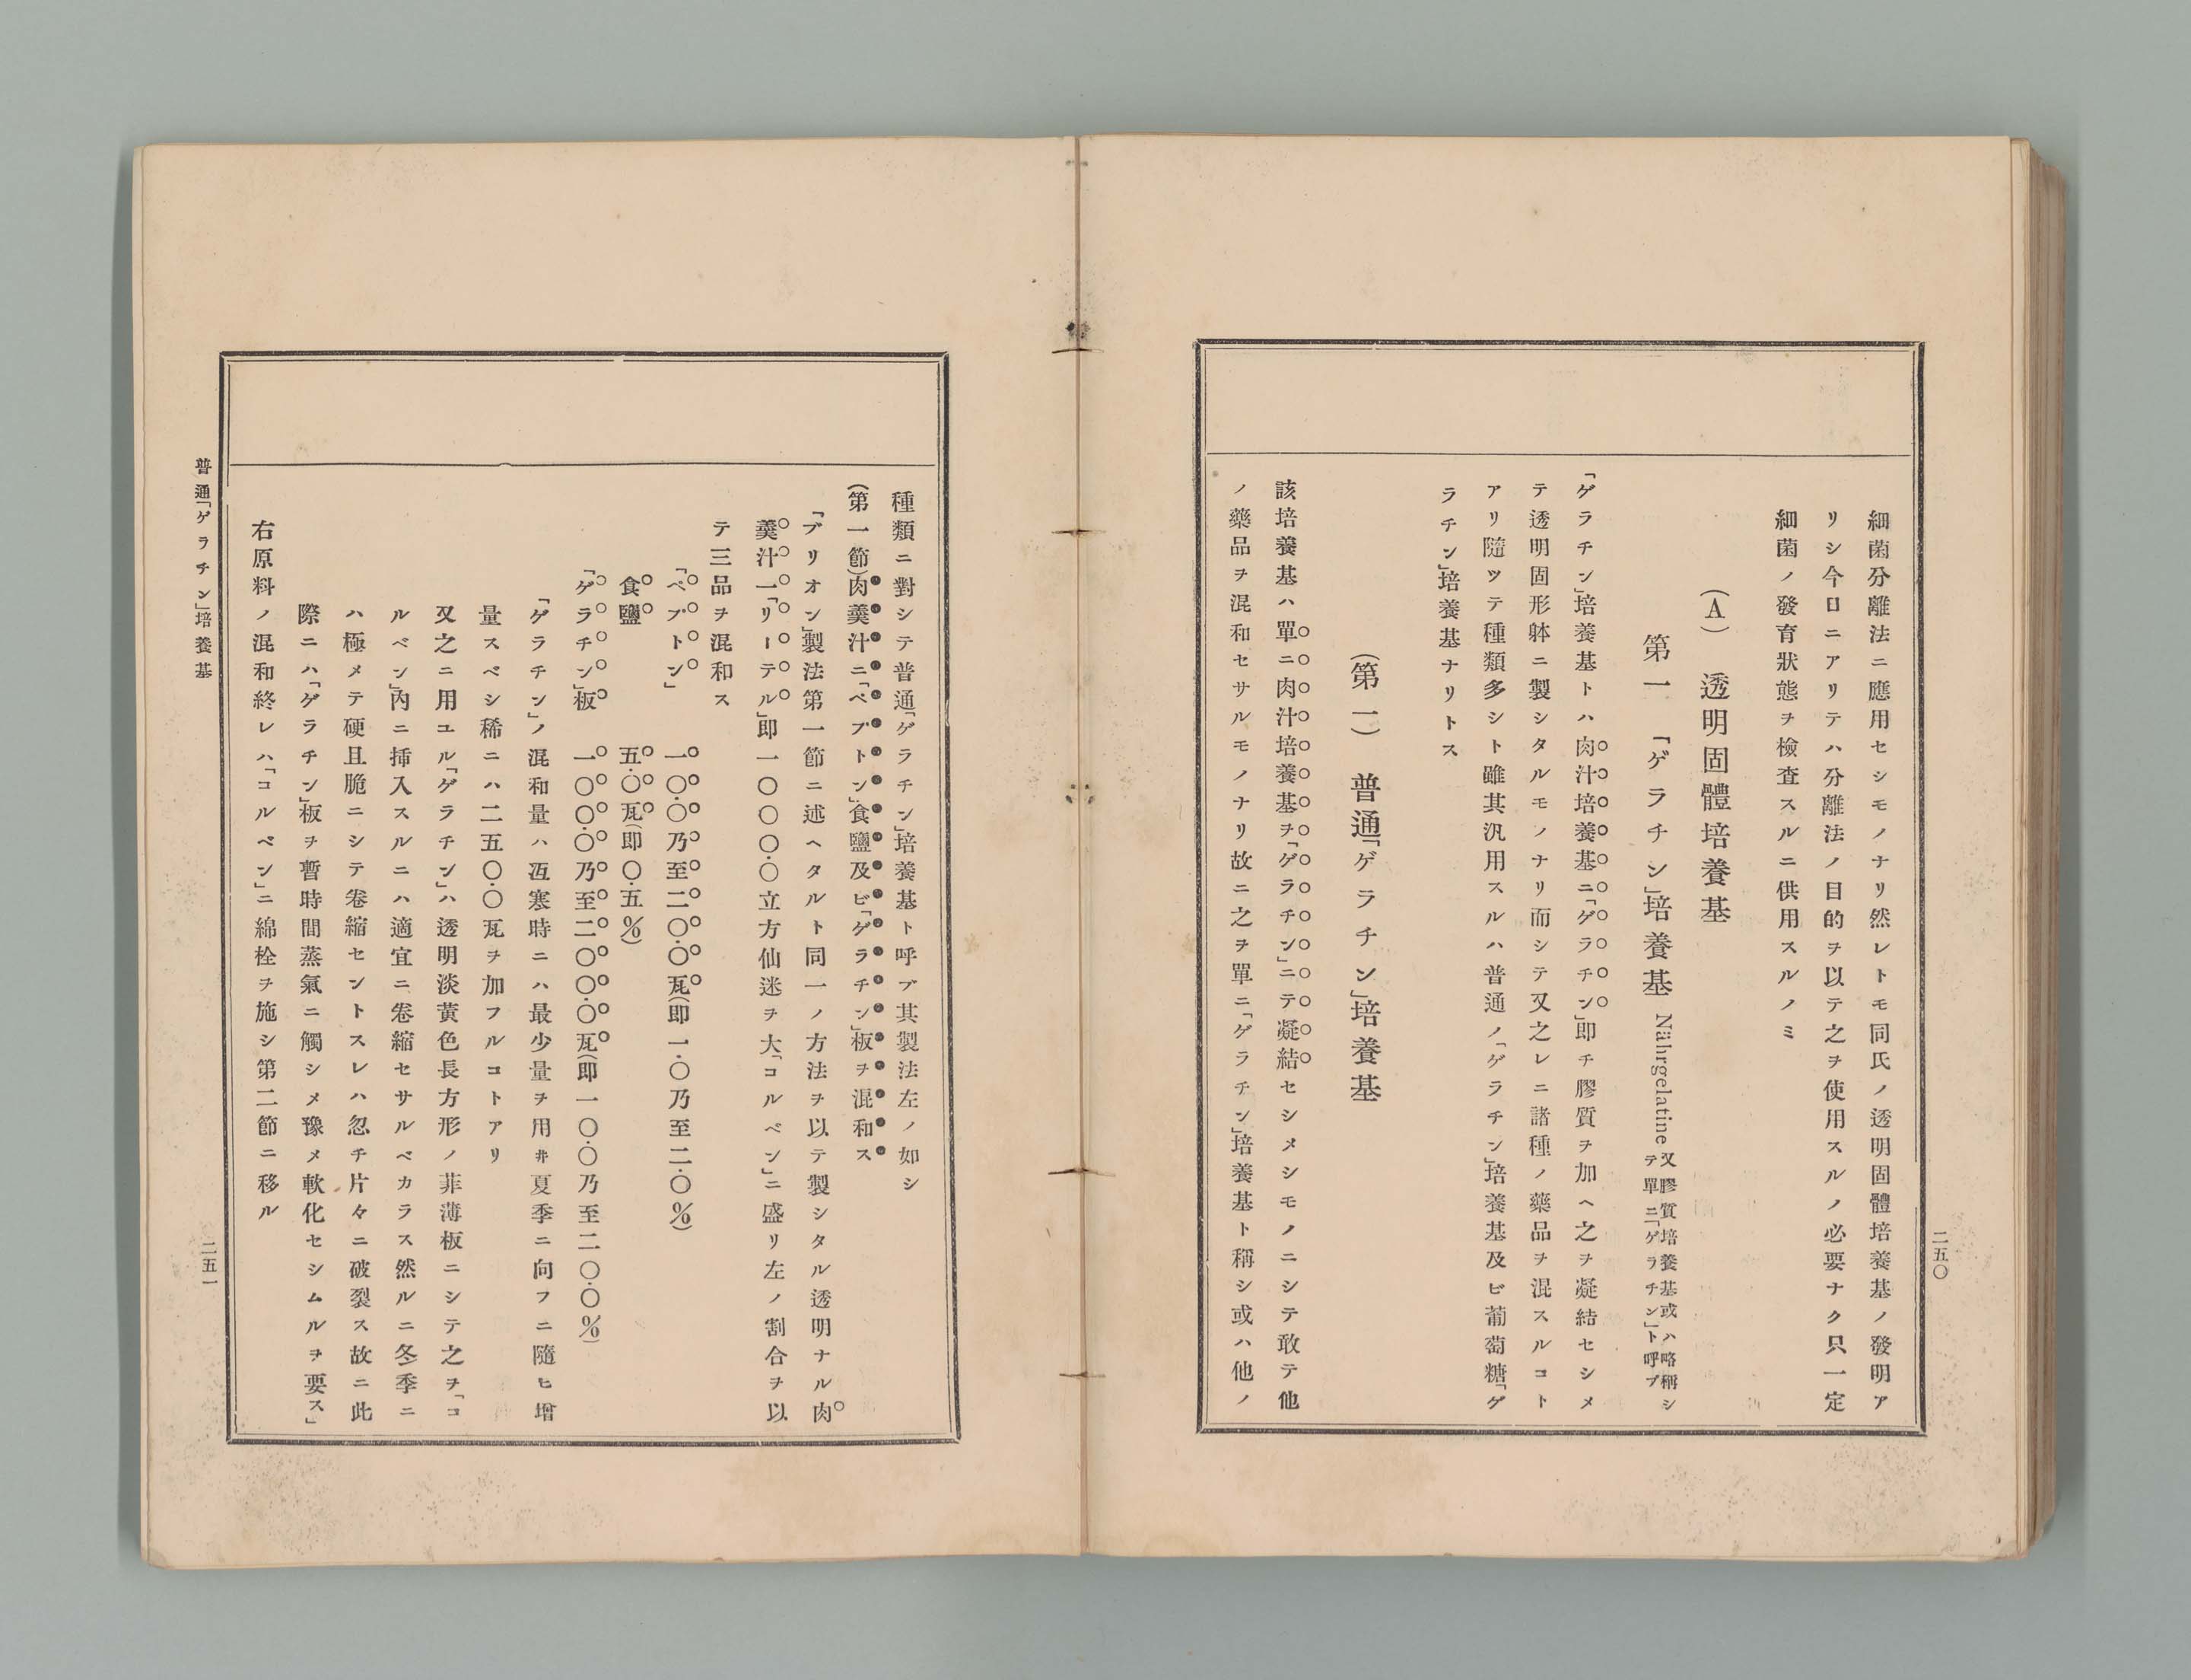 細菌分離法ニ應用セシモノナリ然レトモ同氏ノ透明固體培養基ノ發明ア
リシ今日ニアリテハ分離法ノ目的ヲ以テ之ヲ使用スルノ必要ナク只一定
細菌ノ發育狀態ヲ檢査スルニ供用スルノミ
(A)　透明固體培養基
第一　「ゲラチン」培養基 Nährgelatine 又膠質培養基或ハ略稱シ
テ單ニ「ゲラチン」ト呼ブ
「ゲラチン」培養基トハ肉汁培養基ニ「ゲラチン」即チ膠質ヲ加ヘ之ヲ凝結セシメ
テ透明固形躰ニ製シタルモノナリ而シテ又之レニ諸種ノ藥品ヲ混スルコト
アリ隨ツテ種類多シト雖其汎用スルハ普通ノ「ゲラチン」培養基及ビ葡萄糖「ゲ
ラチン」培養基ナリトス
(第一)　普通「ゲラチン」培養基
該培養基ハ單ニ肉汁培養基ヲ「ゲラチン」ニテ凝結セシメシモノニシテ敢テ他
ノ藥品ヲ混和セサルモノナリ故ニ之ヲ單ニ「ゲラチン」培養基ト稱シ或ハ他ノ
二五〇
種類ニ對シテ普通「ゲラチン」培養基ト呼ブ其製法左ノ如シ
(第一節)肉羹汁ニ「ペプトン」食鹽及ビ「ゲラチン」板ヲ混和ス
「ブリオン」製法第一節ニ述ヘタルト同一ノ方法ヲ以テ製シタル透明ナル肉
羹汁一「リーテル」即一〇〇〇.〇立方仙迷ヲ大「コルベン」ニ盛リ左ノ割合ヲ以
テ三品ヲ混和ス
「ペプトン」　一〇.〇乃至二〇.〇瓦(即一.〇乃至二.〇%)
食鹽　五.〇瓦(即〇.五%)
「ゲラチン」板　一〇〇.〇乃至二〇〇.〇瓦(即一〇.〇乃至二〇.〇%)
「ゲラチン」ノ混和量ハ沍寒時ニハ最少量ヲ用ヰ夏季ニ向フニ隨ヒ增
量スベシ稀ニハ二五〇.〇瓦ヲ加フルコトアリ
又之ニ用ユル「ゲラチン」ハ透明淡黄色長方形ノ菲薄板ニシテ之ヲ「コ
ルベン」內ニ挿入スルニハ適宜ニ卷縮セサルベカラス然ルニ冬季ニ
ハ極メテ硬且脆ニシテ卷縮セントスレハ忽チ片々ニ破裂ス故ニ此
際ニハ「ゲラチン」板ヲ暫時間蒸氣ニ觸シメ豫メ軟化セシムルヲ要ス」
右原料ノ混和終レハ「コルベン」ニ綿栓ヲ施シ第二節ニ移ル
普通「ゲラチン」培養基
二五一